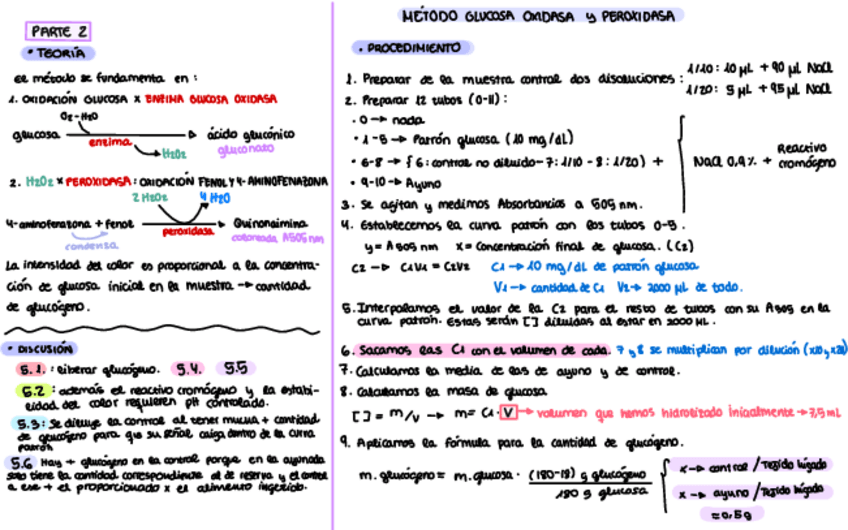 PARTE 2
• TEORÍA
el método se fundamenta en :
1. OXIDACIÓN GLUCOSA x ENZIMA GLUCOSA OXIDASA
O2 - H2O
glucosa → ácido glucónico
enzima gluconato
H2O2
2. H2O2 x PEROXIDASA : OXIDACIÓN FENOL Y 4-AMINOFENAZONA
2 H2O2 4 H2O
4-aminofenazona + fenol → Quinonaimina
condensa peroxidasa coloreada A505 nm
La intensidad del color es proporcional a la concentra-
ción de glucosa inicial en la muestra → cantidad
de glucógeno.
• DISCUSIÓN
5.1. : liberar glucógeno. 5.4. 5.5
5.2 : además el reactivo cromógeno y la estabi-
lidad del color requieren pH controlado.
5.3 : Se diluye la control al tener mucha + cantidad
de glucógeno para que su señal caiga dentro de la curva
patrón
5.6 Hay + glucógeno en la control porque en la ayunada
solo tiene la cantidad correspondiente al de reserva y el control
a ese + el proporcionado x el alimento ingerido.
MÉTODO GLUCOSA OXIDASA y PEROXIDASA
• PROCEDIMIENTO
1. Preparar de la muestra control dos disoluciones : 1/10 : 10 μL + 90 μL NaCl
1/20 : 5 μL + 95 μL NaCl
2. Preparar 12 tubos (0-11) :
• 0 → nada
• 1-5 → Patrón glucosa (10 mg/dL)
• 6-8 → { 6 : control no diluido - 7 : 1/10 - 8 : 1/20) + NaCl 0,9% + Reactivo cromógeno
• 9-10 → Ayuno
3. Se agitan y medimos Absorbancias a 505 nm.
4. Establecemos la curva patrón con los tubos 0-5.
y = A 505 nm x = Concentración final de glucosa. (C2)
C2 → C1V1 = C2V2 C1 → 10 mg/dL de patrón glucosa
V1 → cantidad de C1 V2 → 2000 μL de todo.
5. Interpolamos el valor de la C2 para el resto de tubos con su A505 en la
curva patrón. Estas serán [ ] diluidas al estar en 2000 μL.
6. Sacamos las C1 con el volumen de cada. 7 y 8 se multiplican por dilución (x10 y x20)
7. Calculamos la media de las de ayuno y de control.
8. Calculamos la masa de glucosa
[ ] = m/v → m = C1 · V → volumen que hemos hidrolizado inicialmente → 7,5 mL
9. Aplicamos la fórmula para la cantidad de glucógeno.
m. glucógeno = m. glucosa · (180-18) g glucógeno / 180 g glucosa
x → control / Tejido hígado
x → ayuno / Tejido hígado
= 0,5 g